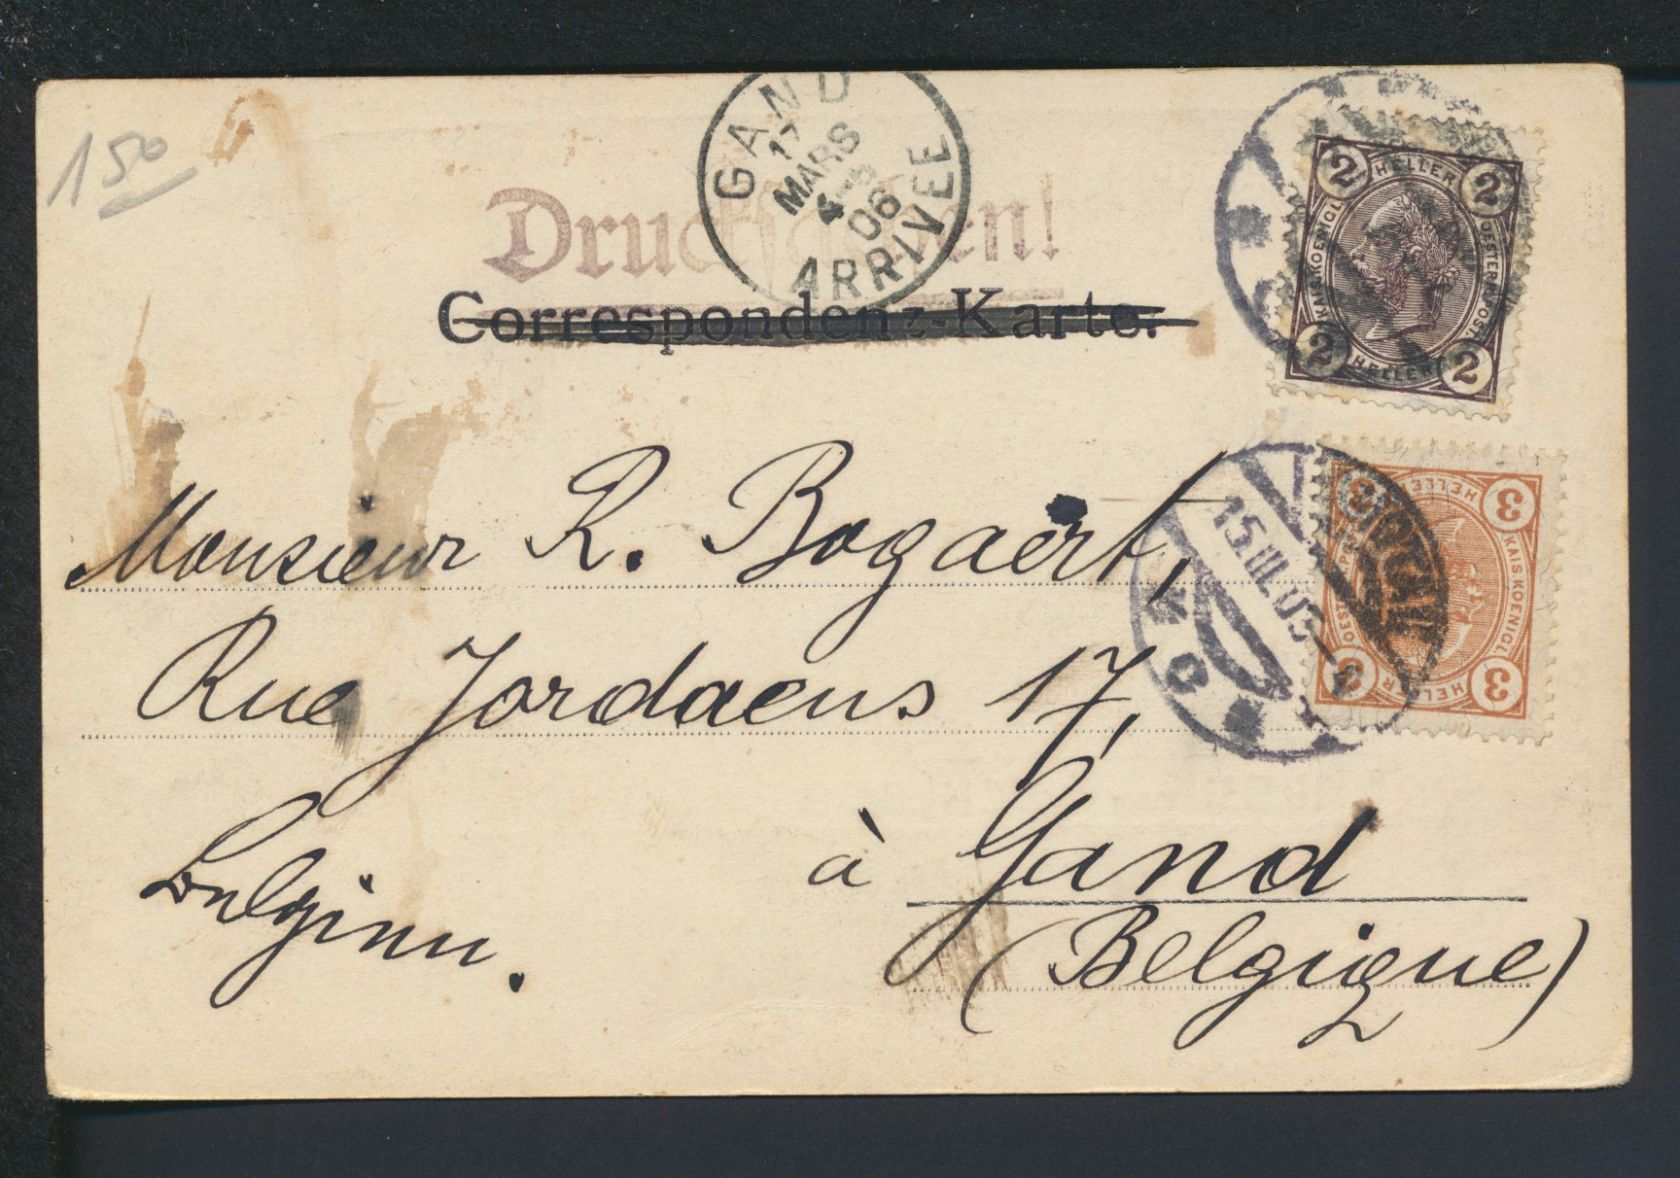 150
GAND
17
MARS
4-5
06
ARRIVEE
Drucksachen!
Correspondenz-Karte.
2 HELLER 2
KAIS. KOENIGL. OESTERR. POST.
2 HELLER 2
Monsieur R. Bogaert,
15 III 06
3 HELLER 3
KAIS. KOENIGL.
3 HELLER 3
Rue Jordaens 17,
à Gand
Belgien.
(Belgique)